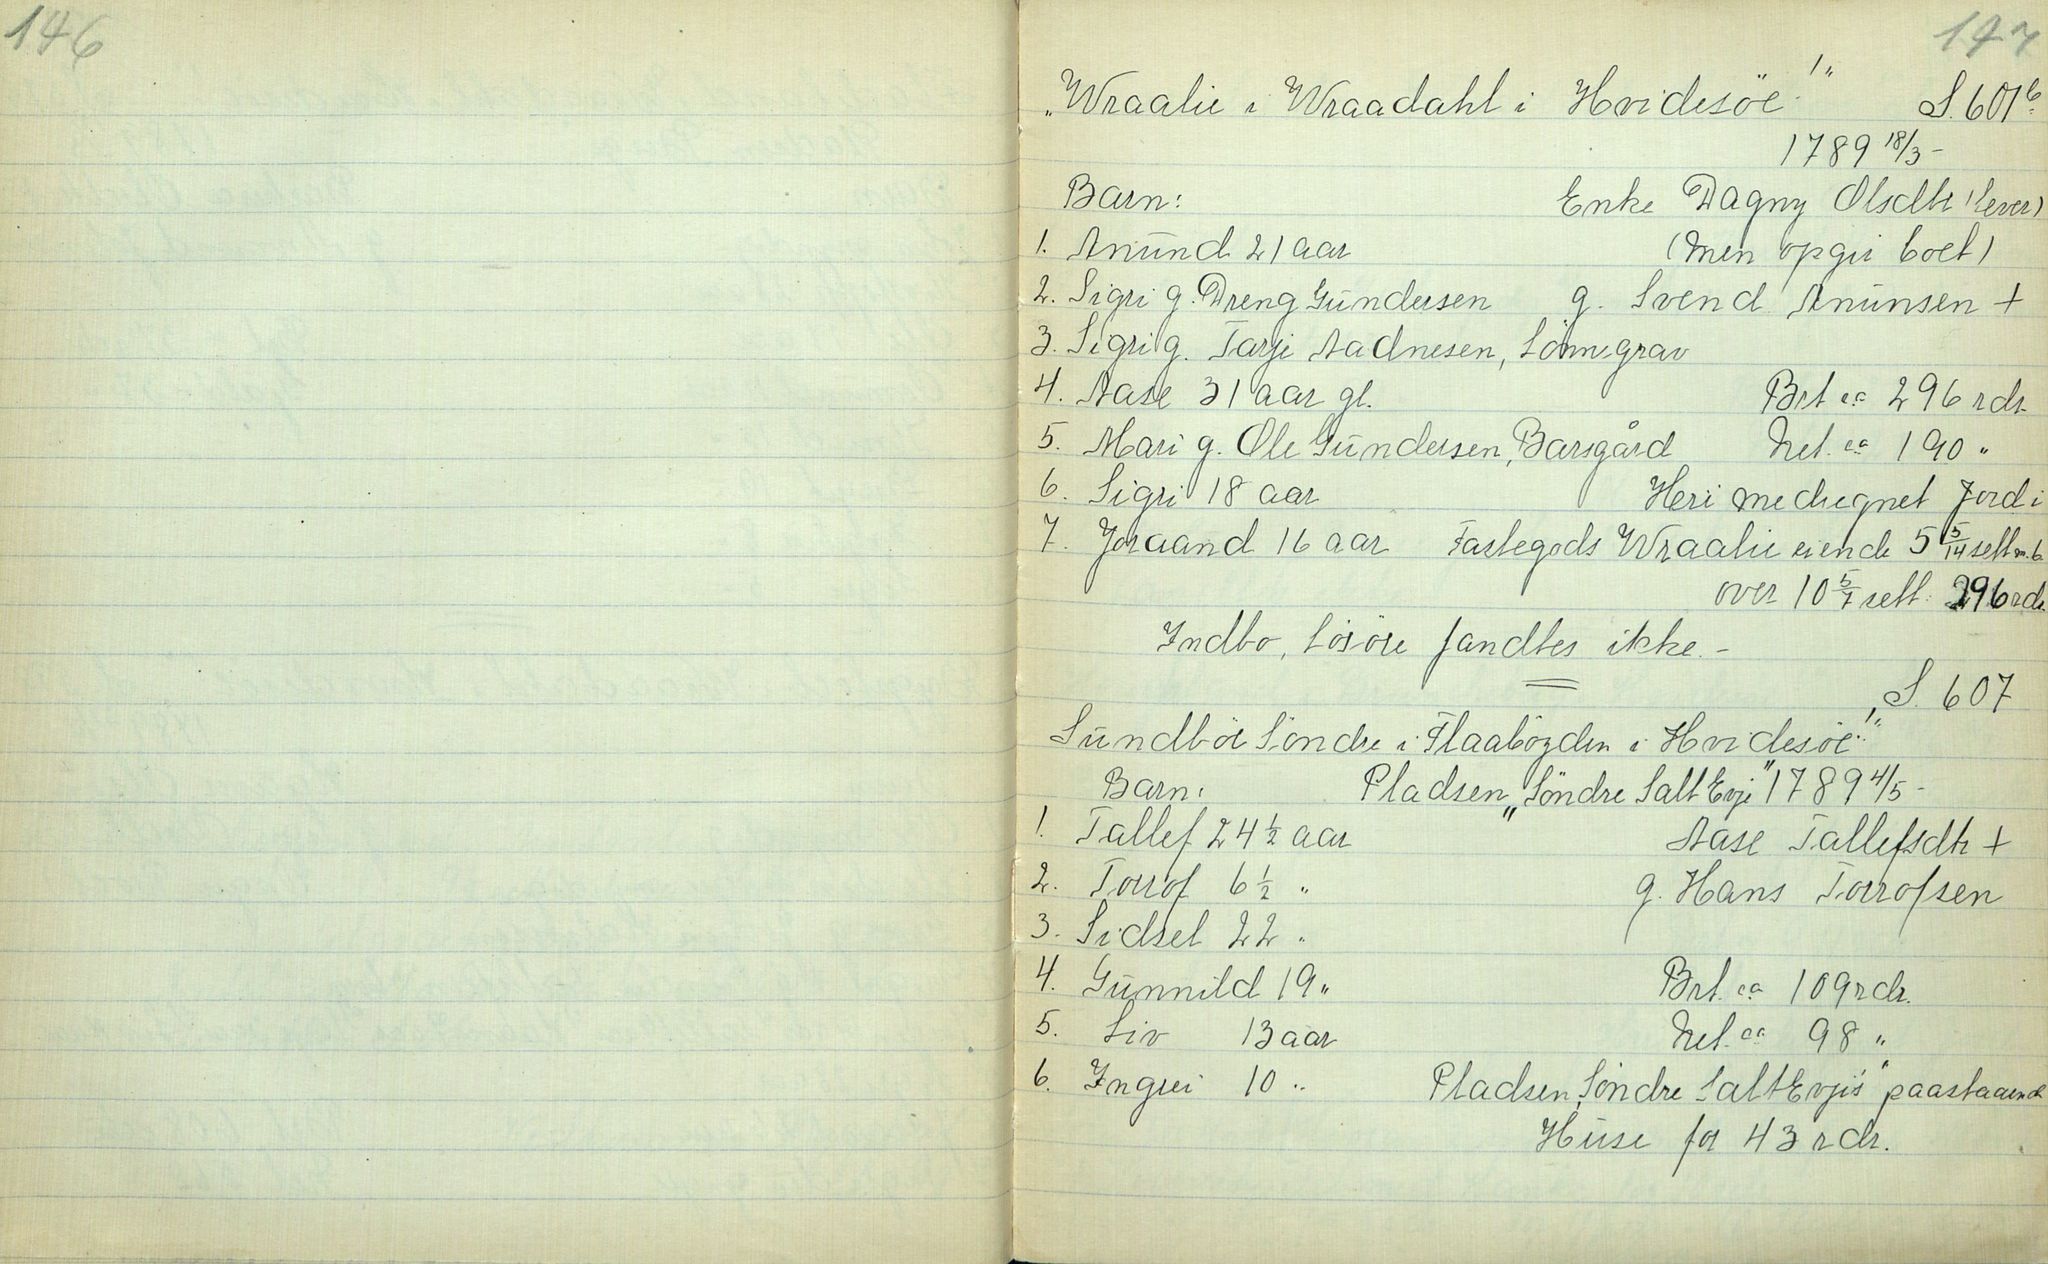 146
147
„Wraalie i Wraadahl i Hvidesöe!" S. 601b
1789 18/3 –
Barn: Enke Dagny Olsdtr (lever)
1. Anŭnd 21 aar (men opgir boet)
2. Sigri g. Dreng Gŭndersen g. Svend Anŭnsen +
3. Sigri g. Tarje Aadnesen, Lönnegrav
4. Aase 31 aar gl. Brt ca 296 rdr.
5. Mari g. Ole Gŭndersen, Barsgård Net. ca 190 "
6. Sigri 18 aar Heri medregnet Jord i
7. Joraand 16 aar Fastegods Wraalie eiende 5 5/14 sett m. b.
over 10 5/7 sett. 296 rdr.
Indbo, Lösöre fandtes ikke. –
S. 607
Sŭndböe Söndre i Flaabögden i Hvidesöe!"
Barn: Pladsen „Söndre Salt Evje" 1789 4/5 –
1. Tallef 24 1/2 aar Aase Tallefsdtr +
2. Torrof 6 1/2 " g. Hans Torrofsen
3. Sidsel 22 "
4. Gŭnnild 19 " Brt. ca 109 rdr.
5. Liv 13 aar Net. ca 98 "
6. Ingrei 10 " Pladsen „Söndre Salt Evjis" paastaaende
Hŭse for 43 rdr.